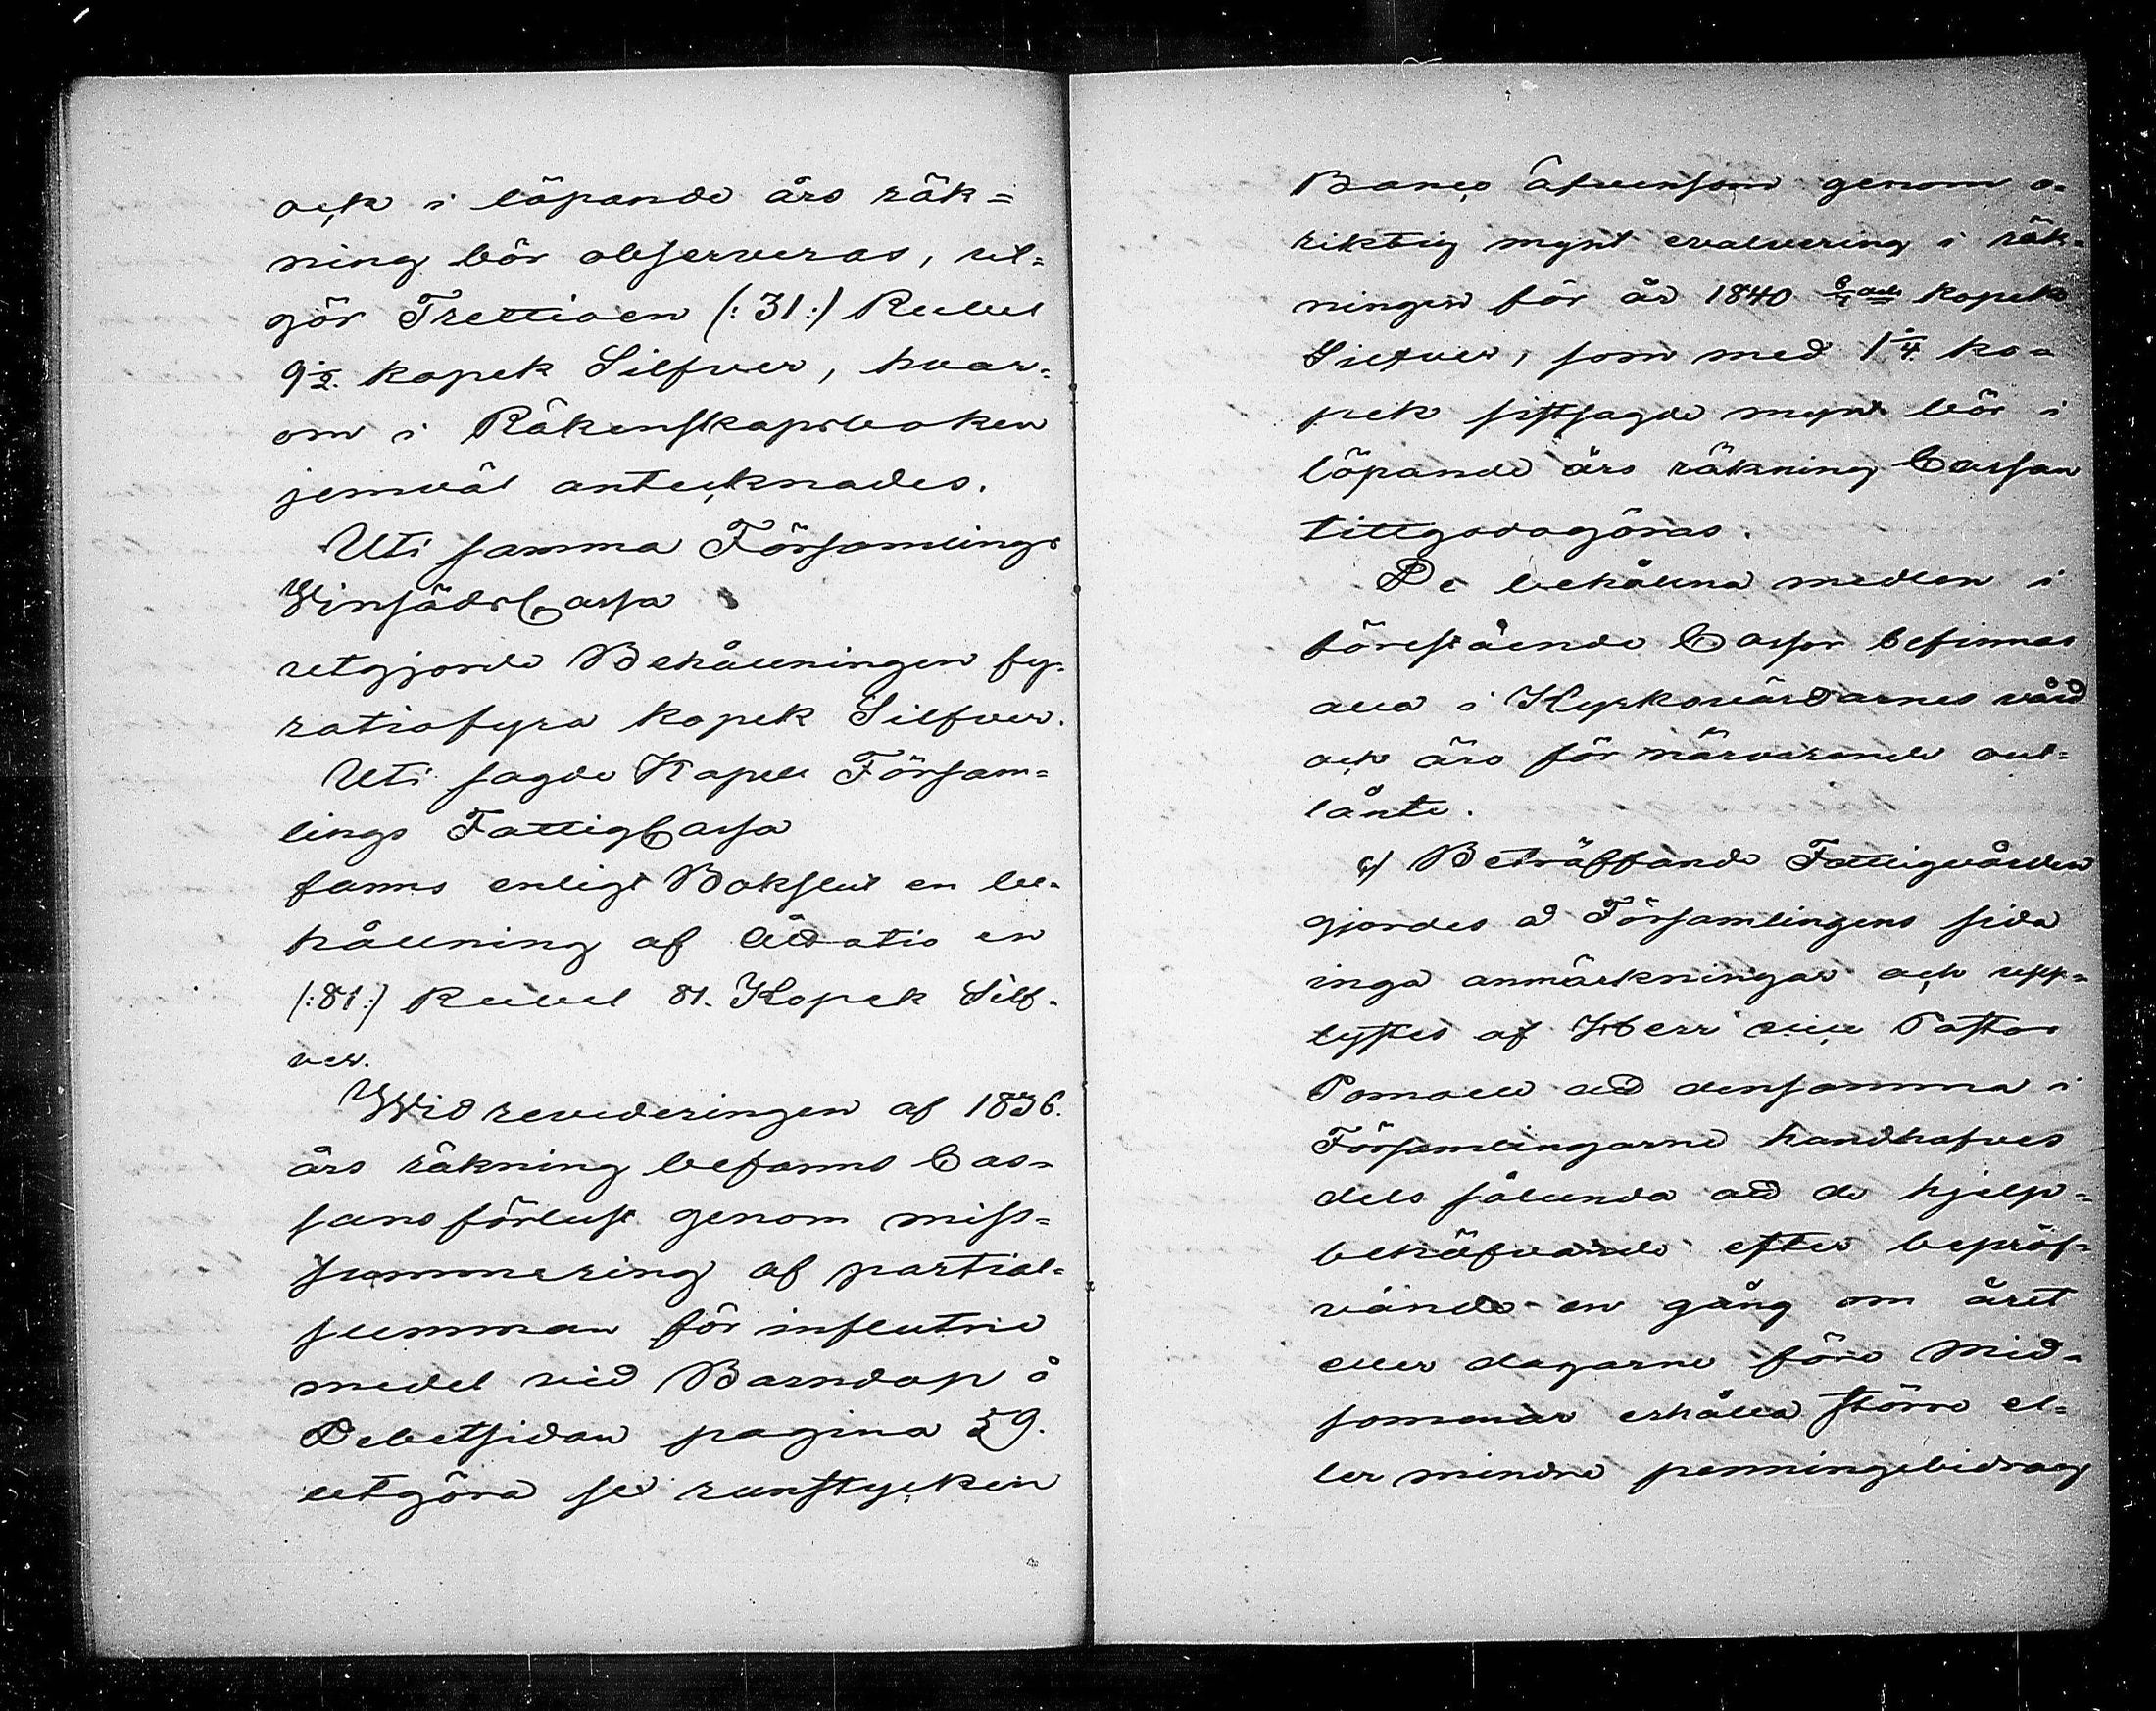 och i löpande års räk=
ning bör observeras, ut=
gör Trettioen (: 31 :) Rubel
9 1/2 kopek Silfver, hvar=
om i Räkenskapsboken
jemväl antecknades.
Uti samma Församlings
WinsädsCassa
utgjorde Behållningen fy-
ratiofyra kopek Silfver.
Uti sagde Kapell Försam=
lings FattigCassa
fanns enligt Bokslut en be-
hållning af Åttatio en
(: 81 :) Rubel 81. Kopek Silf-
ver.
Wid revideringen af 1836.
års räkning befanns Cas-
sans förlust genom miss=
summering af partial-
summan för influtne
medel vid Barndop å
Debetsidan pagina 59.
utgöra se runstycken
Banco äfvensom genom o-
riktig mynt evalvering i räk-
ningen för år 1840 kopek
Silfver, som med 1 1/4 ko-
pek sistsagde mynt bör i
löpande års räkning Cassan
tillgodogöras.
De behållna medlen i
förestående Cassor befinnas
alla i Kyrkovärdarnes vård
och äro för närvarande out-
lånte.
c) Beträffande Fattigvården
gjordes å Församlingens sida
inga anmärkningar och upp=
lystes af Herr Pastor
att densamma i
Församlingarne handhafves
dels sålunda att de hjelp=
behöfvande efter bepröf-
vande en gång om året
eller dagarne före Mid-
sommar erhålla större el=
ler mindre penningebidrag